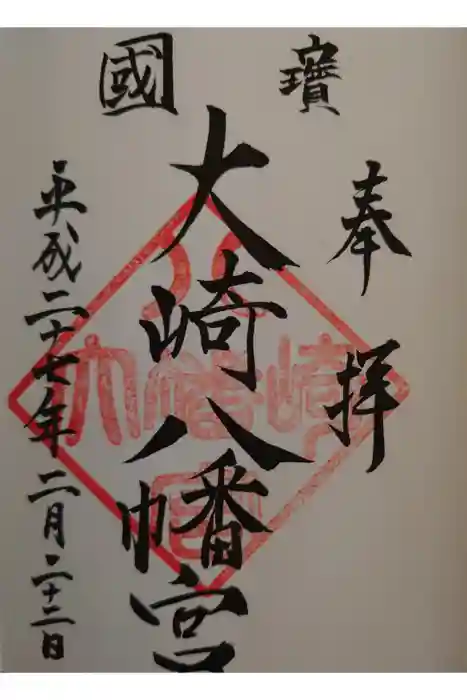 國寶
奉拝
大崎八幡宮
平成二十七年二月二十二日